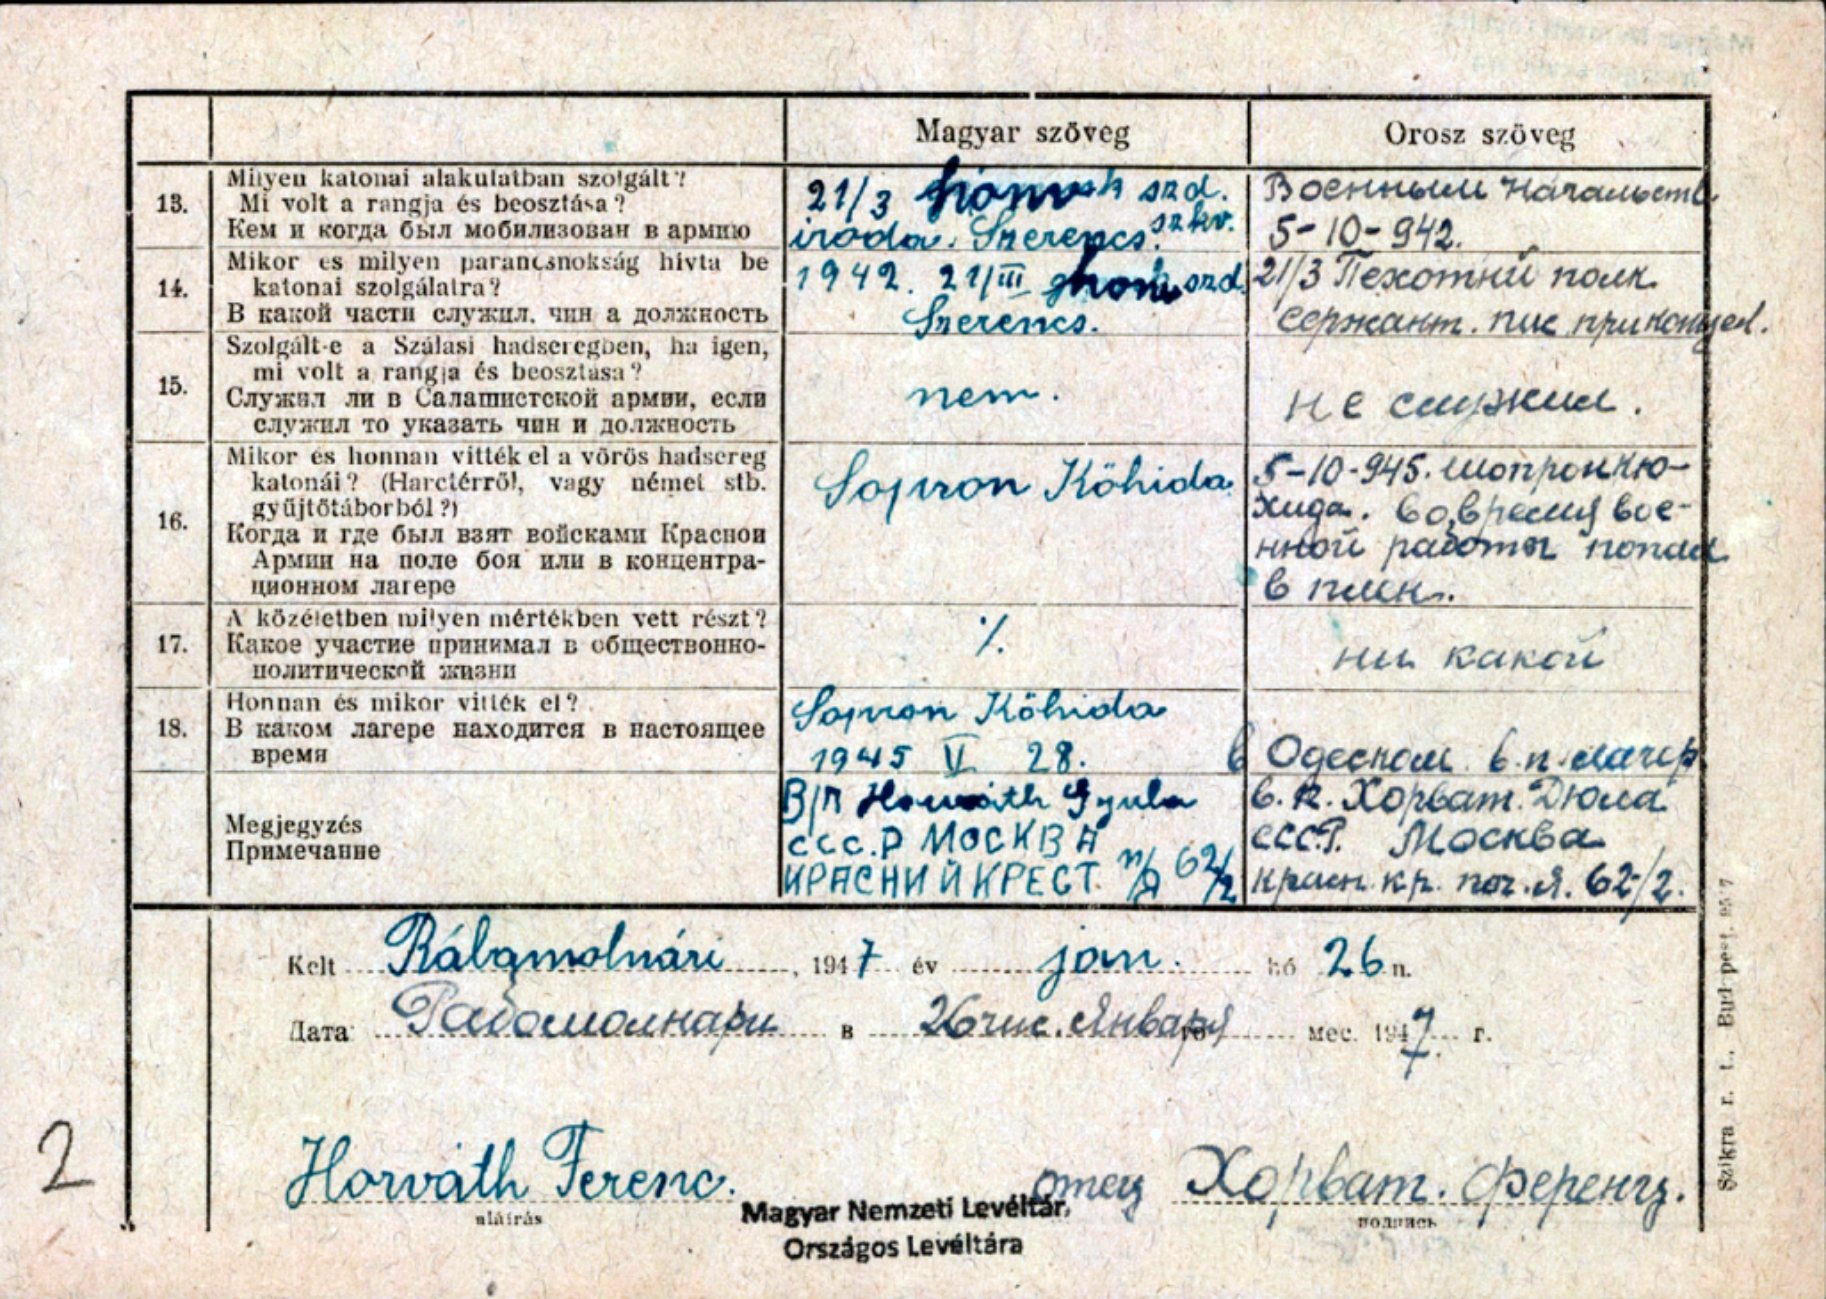 Magyar szöveg
Orosz szöveg
13.
Milyen katonai alakulatban szolgált?
Mi volt a rangja és beosztása?
Кем и когда был мобилизован в армию
21/3 szd.
iroda. Szerencs. szkv.
Военным
5-10-942.
14.
Mikor és milyen parancsnokság hívta be
katonai szolgálatra?
В какой части служил. чин а должность
1942. 21/III szd.
Szerencs.
21/3 Пехотний полк
сержант. пис.
15.
Szolgált-e a Szálasi hadseregben, ha igen,
mi volt a rangja és beosztása?
Служил ли в Салашистской армии, если
служил то указать чин и должность
nem.
не служил.
16.
Mikor és honnan vitték el a vörös hadsereg
katonái? (Harctérről, vagy német stb.
gyűjtőtáborból?)
Когда и где был взят войсками Красной
Армии на поле боя или в концентра-
ционном лагере
Sopron Kőhida
5-10-945. Шопрон Кю-
хида. во время вое-
нной работы попал
в плен.
17.
A közéletben milyen mértékben vett részt?
Какое участие принимал в общественно-
политической жизни
%
ни какой
18.
Honnan és mikor vitték el?
В каком лагере находится в настоящее
время
Sopron Kőhida
1945 V 28.
в Одеском в.п.
Megjegyzés
Примечание
В/П Horváth Gyula
ссс.р МОСКВА
КРАСНИЙ КРЕСТ п/я 62/2
Хорват. Дюла
ССС.Р. Москва
красн. кр. поч. я. 62/2.
Kelt Rábamolnári, 1947 év jan. hó 26 n.
Дата Рабомолнари в 26 чис. Января мес. 1947 г.
2
Horváth Ferenc.
aláírás
отец Хорват. Ференц.
подпись
Magyar Nemzeti Levéltár
Országos Levéltára
Szikra r. t., Budapest.